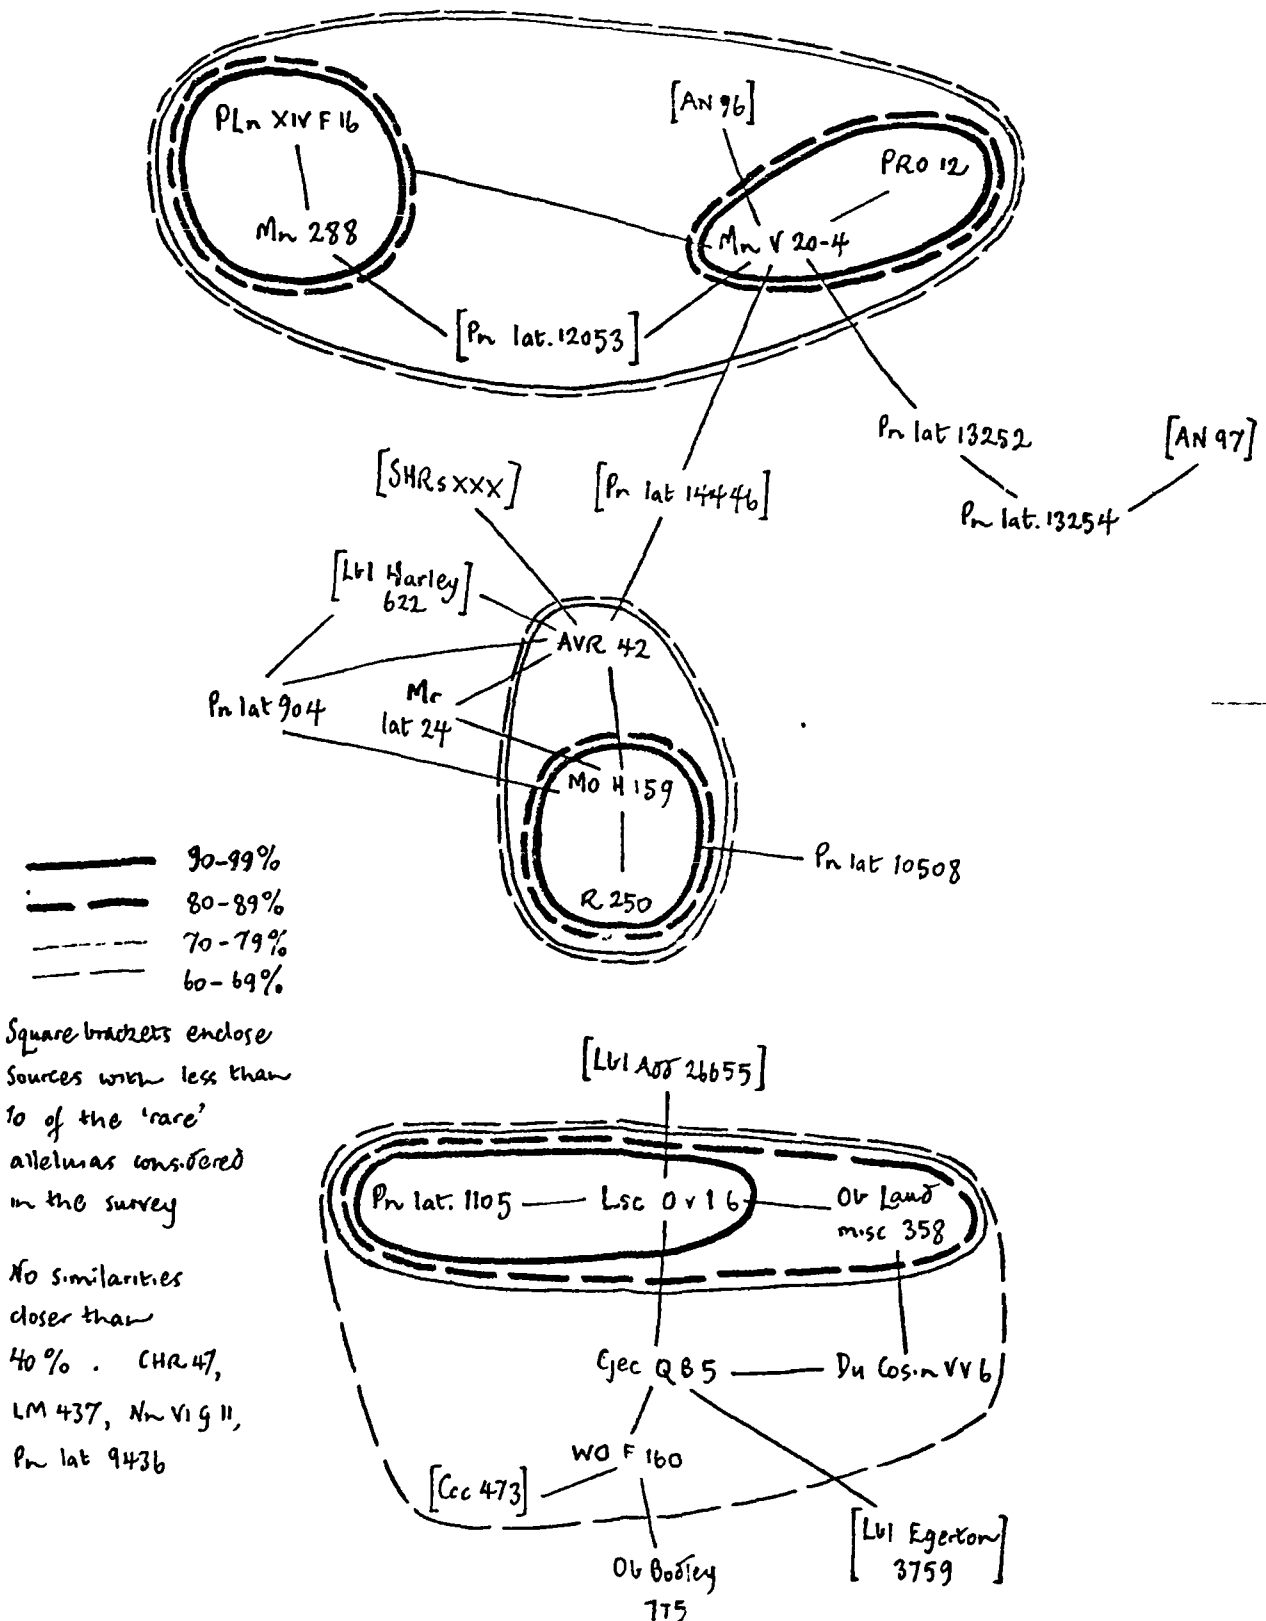 [AN 96]
PLn XIV F 16
PRO 12
Mn 288
Mn V 20-4
[Pn lat. 12053]
Pn lat 13252
[AN 97]
[SHRs XXX]
[Pn lat 14446]
Pn lat. 13254
[Lbl Harley
622]
AVR 42
Pn lat 904
Mr
lat 24
MO H 159
Pn lat 10508
R 250
90-99%
80-89%
70-79%
60-69%
Square brackets enclose
sources with less than
10 of the 'rare'
alleluias considered
in the survey
No similarities
closer than
40%. CHR 47,
LM 437, Nn VI G 11,
Pn lat 9436
[Lbl Add 26655]
Pn lat. 1105
Lsc O v 1 6
Ob Laud
misc 358
Cjec QB5
Du Cosin VV6
WO F 160
[Ccc 473]
[Lbl Egerton
3759]
Ob Bodley
775